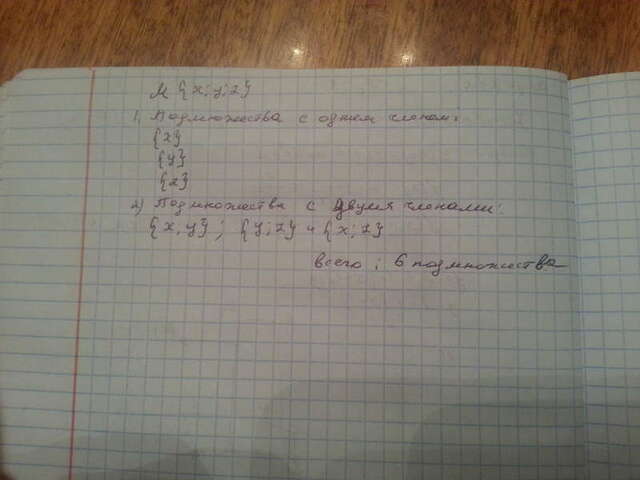 M {x; y; z}
1) Подмножества с одним членом:
{x}
{y}
{z}
2) Подмножества с двумя членами:
{x, y}; {y; z} и {x; z}
всего: 6 подмножества